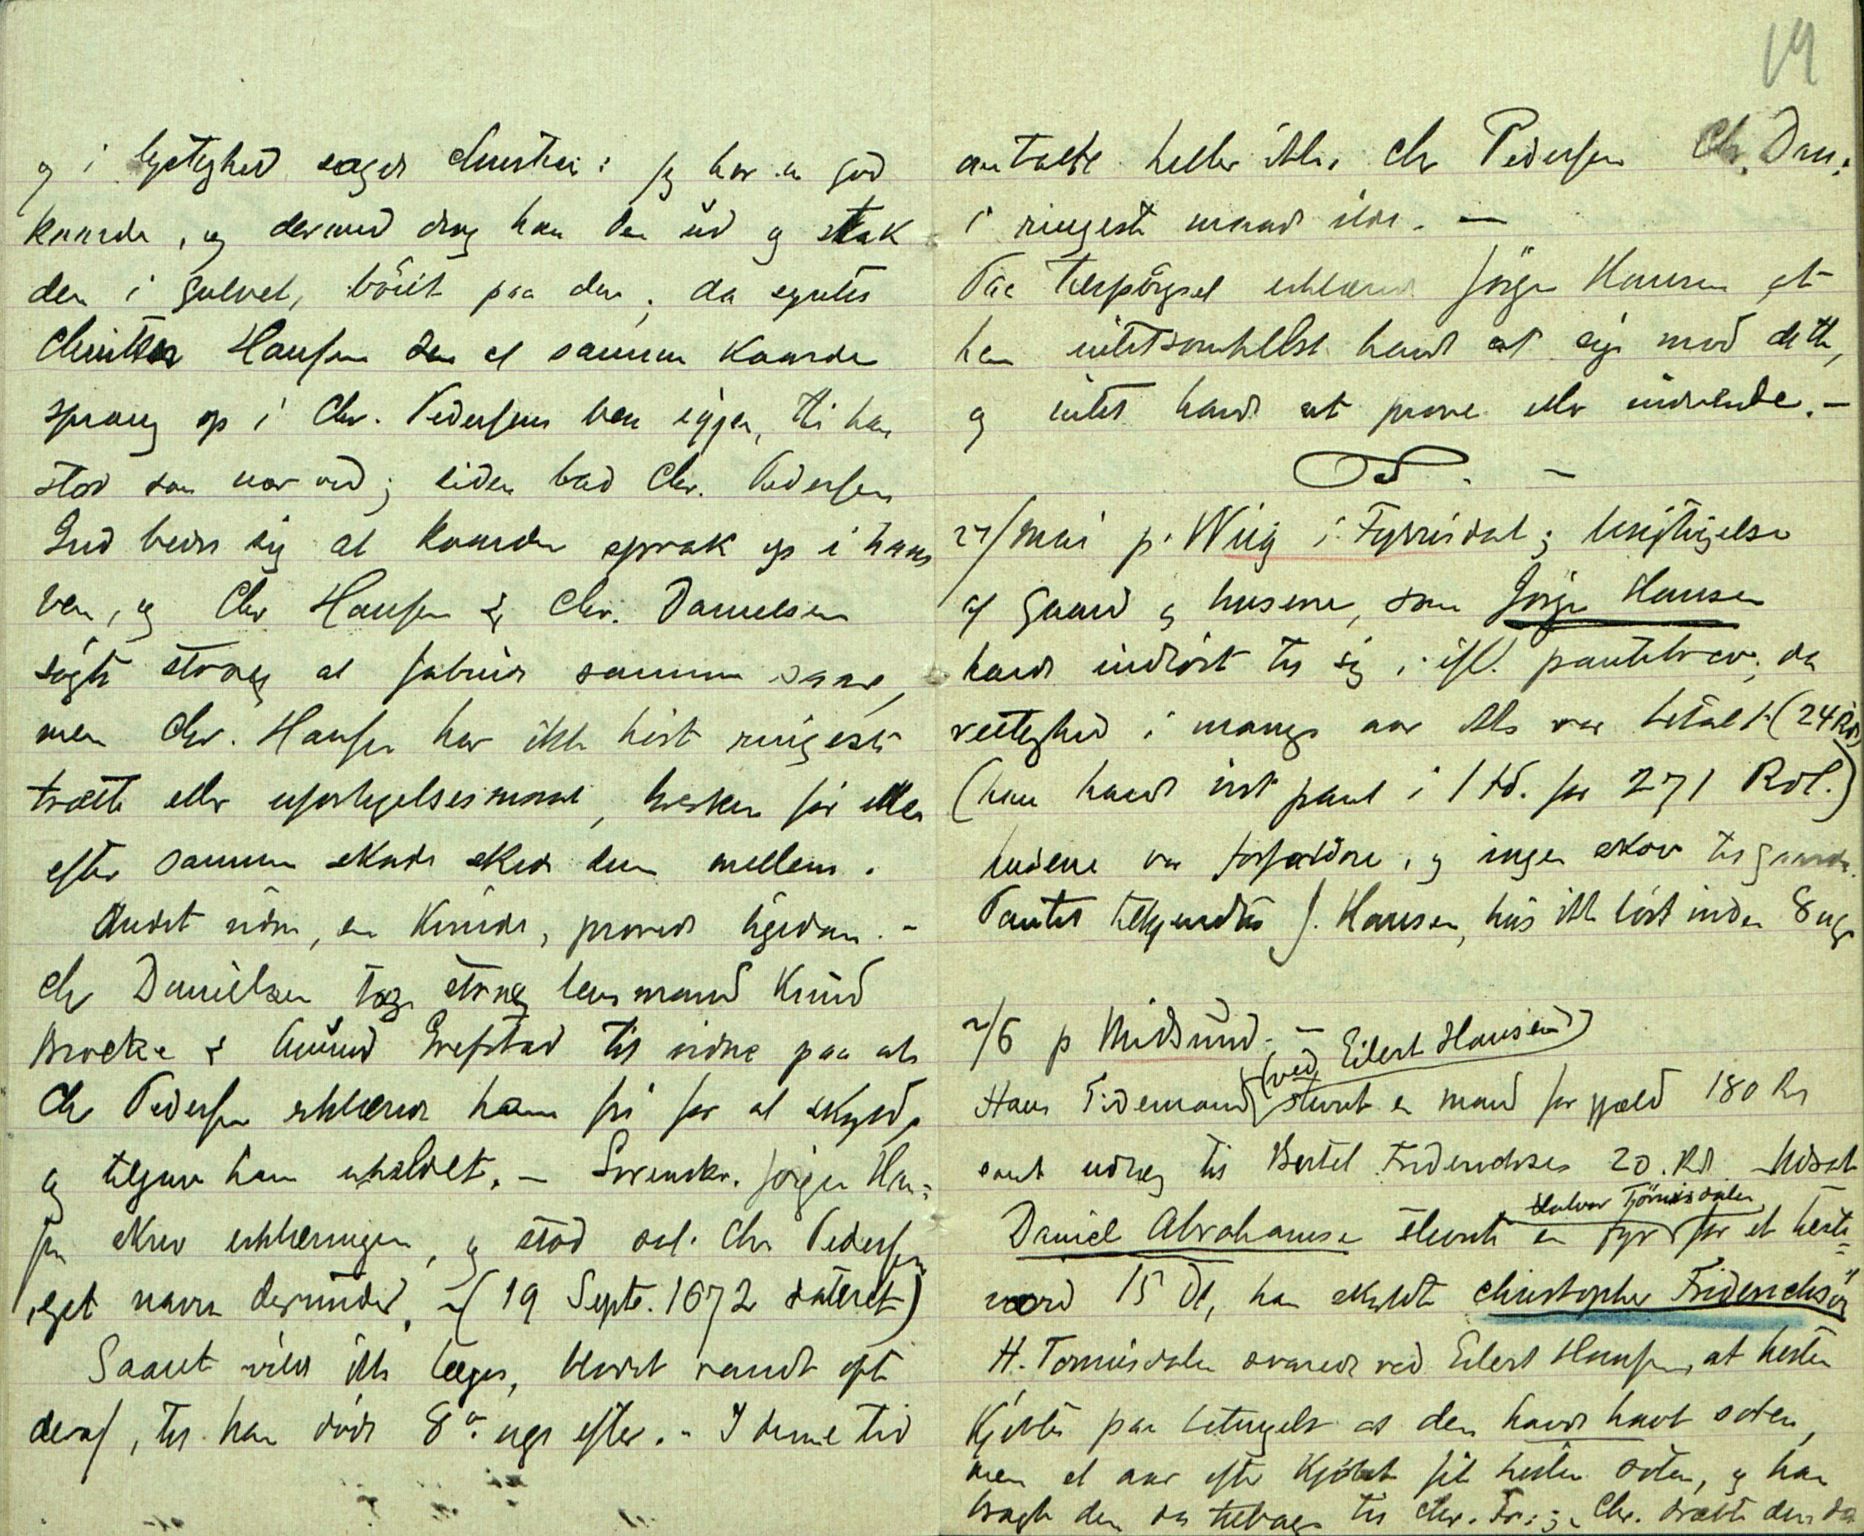 og i lystighed sagde Christen: jeg har en god
kaarde, og dermed drog han den ud og stak
den i gulvet, böiet paa den; da syntes
Christen Hansen den af samme kaarde
sprang op i Chr. Pedersens ben igjen, thi han
stod som nær ved; siden bad Chr. Pedersen
Gud bedre sig at kaarden sprak op i hans
ben, og Chr Hansen & Chr. Danielsen
sögte strax at forbinde samme saar,
men Chr. Hansen har ikke hört ringeste
trætte eller uforligelsesmaal, hverken för eller
efter samme skade skede dem mellem.
Andet vidne, en Kvinde, provede ligedan. -
Chr Danielsen tog strax lensmand Knud
Brocke & Amund Grefstad til vidne paa at
Chr Pedersen erklærede ham fri for al skyld,
og tilgav ham uheldet. - Sorenskr. Jörgen Han=
sen skrev erklæringen, og stod sal. Chr Pedersens
eget navn derunder. - (19 Septr. 1672 dateret)
Saaret vilde ikke læges, blodet randt ofte
deraf, til han döde 8 uger efter. - I denne tid
19
antalte heller ikke Chr Pedersen Chr. Dan.
i ringeste maade ilde. -
Paa tilspörgsel erklærede Jörgen Hansen at
han intetsomhelst havde at sige mod dette,
og intet havde at prove eller indvende. -
27/mai p. Wiig i Fyrrisdal; besigtigelse
af gaard og husene, som Jörgen Hansen
havde indlöst til sig, ifl. pantebrev, da
rettighed i mange aar ikke var betalt (24 Rdl)
(han havde irst pant i 1 td. for 271 Rdl.)
husene var forfaldne, og ingen skov til gaarden.
Pantet tilkjendtes J. Hansen, hvis ikke löst inden 8 uger
2/6 p Midsund. -
(ved Eilert Hansen)
Hans Tidemand stevnte en mand for gjæld 180 Rd
samt udlæg til Bertel Fridrichsen 20. Rd
Daniel Abrahamsen stevnte en fyr for et heste=
Halvor Tönnisdalen
15 Dl, han skyldte Christopher Friderichsön
H. Tonnisdalen svarede ved Eilert Hansen, at hesten
Kjöbtes paa betingelse at den havde havt soten,
men et aar efter Kjöbet fik hesten soten, og han
bragte den da tilbage til Chr. Fr.; Chr. trætte den da